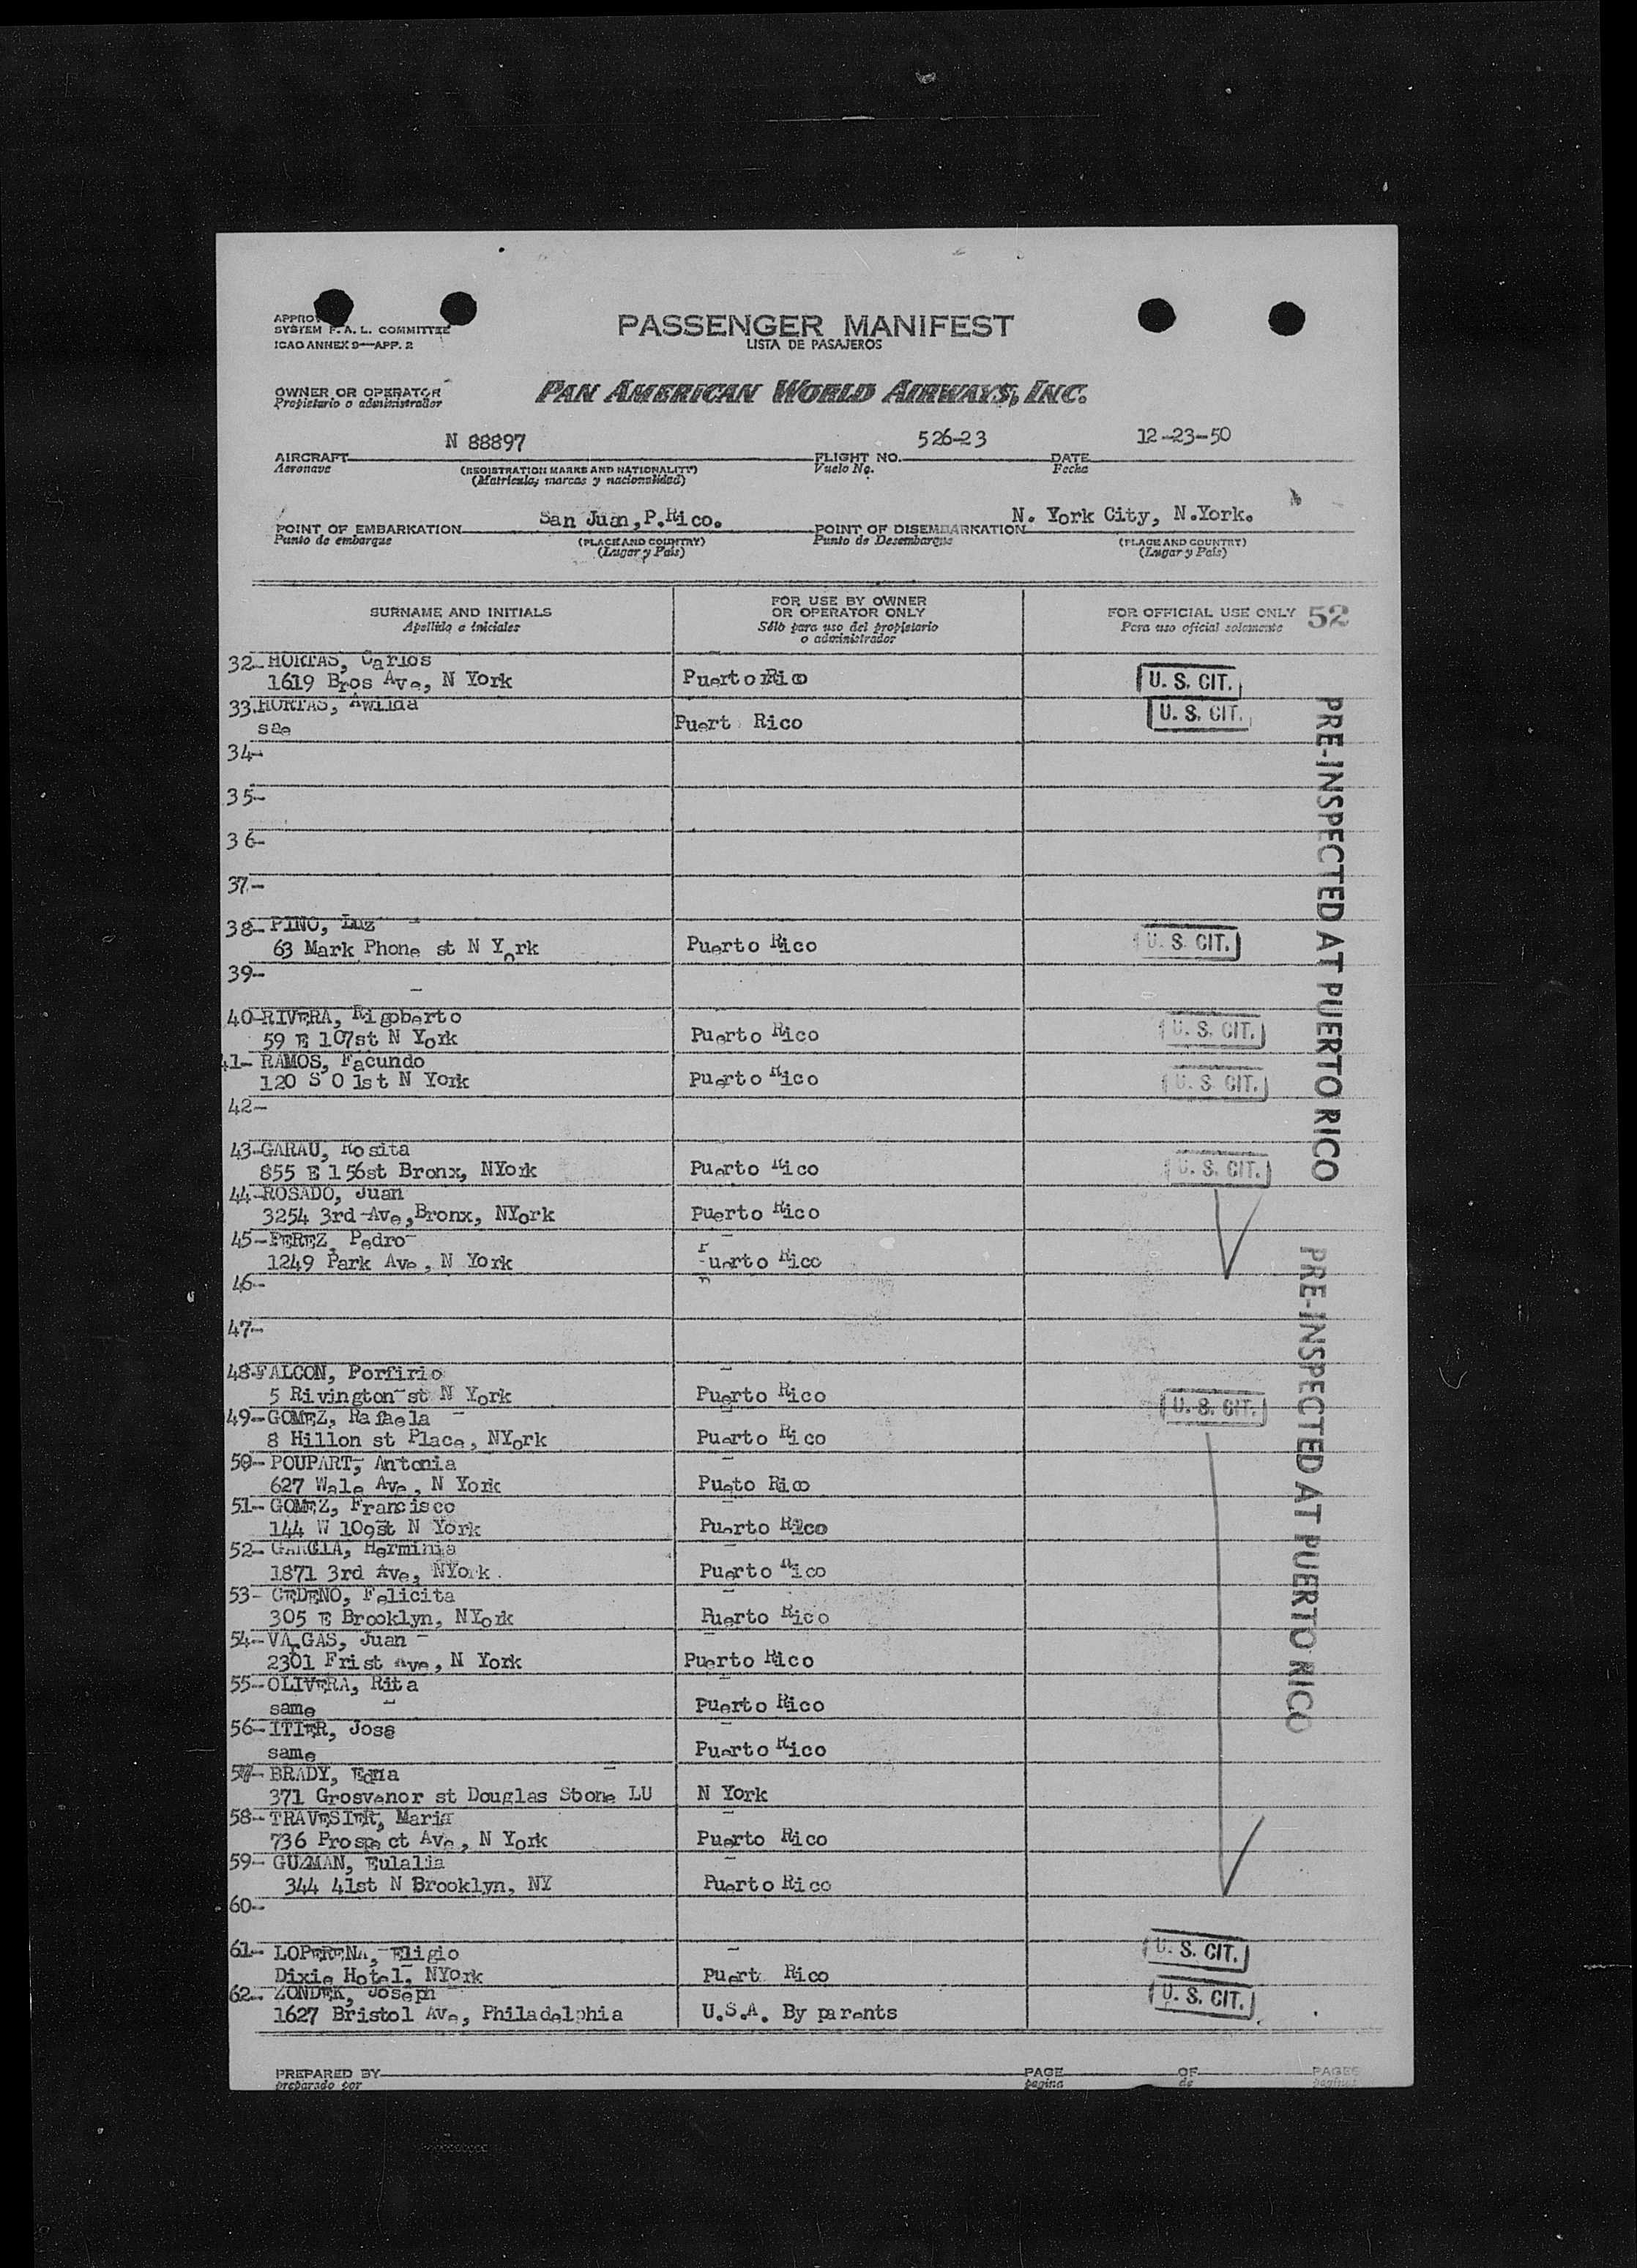 SYSTEM F. A. L. COMMITTEE
ICAO ANNEX 9—APP. 2
PASSENGER MANIFEST
LISTA DE PASAJEROS
OWNER OR OPERATOR
Propietario o administrador
PAN AMERICAN WORLD AIRWAYS, INC.
N 88897 526-23 12-23-50
AIRCRAFT FLIGHT NO. DATE
Aeronave (REGISTRATION MARKS AND NATIONALITY) Vuelo No. Fecha
(Matricula, marcas y nacionalidad)
San Juan, P.Rico. N. York City, N.York.
POINT OF EMBARKATION POINT OF DISEMBARKATION
Punto de embarque (PLACE AND COUNTRY) Punto de Desembarque (PLACE AND COUNTRY)
(Lugar y País) (Lugar y País)
SURNAME AND INITIALS FOR USE BY OWNER OR OPERATOR ONLY FOR OFFICIAL USE ONLY 52
Apellido e iniciales Sólo para uso del propietario o administrador Para uso oficial solamente
32- HORTAS, Carlos
1619 Bros Ave, N York Puerto Rico U. S. CIT.
33. HORTAS, Awilda U. S. CIT.
sae Puert Rico
34-
35-
36-
37-
38- PINO, Luz
63 Mark Phone st N York Puerto Rico U. S. CIT.
39-
40-RIVERA, Rigoberto
59 E 107st N York Puerto Rico U. S. CIT.
41- RAMOS, Facundo
120 S O 1st N York Puerto Rico U. S. CIT.
42-
43-GARAU, Rosita
855 E 156st Bronx, NYork Puerto Rico U. S. CIT.
44-ROSADO, Juan
3254 3rd-Ave,Bronx, NYork Puerto Rico
45-PEREZ, Pedro
1249 Park Ave, N York Puerto Rico
46-
47-
48-FALCON, Porfirio
5 Rivington st N York Puerto Rico U. S. CIT.
49-GOMEZ, Rafaela
8 Hillon st Place, NYork Puerto Rico
50- POUPART, Antonia
627 Wale Ave, N York Pueto Rico
51- GOMEZ, Francisco
144 W 109st N York Puerto Rico
52- GARCIA, Herminia
1871 3rd Ave, NYork. Puerto Rico
53- CEDENO, Felicita
305 E Brooklyn, NYork Puerto Rico
54-VARGAS, Juan
2301 Frist Ave, N York Puerto Rico
55-OLIVERA, Rita
same Puerto Rico
56-ITIER, Jose
same Puerto Rico
57- BRADY, Edna
371 Grosvenor st Douglas Stone LU N York
58-TRAVESIER, Maria
736 Prospect Ave, N York Puerto Rico
59- GUZMAN, Eulalia
344 41st N Brooklyn, NY Puerto Rico
60-
61- LOPERENA, Eligio U. S. CIT.
Dixie Hotel, NYork Puert Rico
62- ZONDEK, Joseph U. S. CIT.
1627 Bristol Ave, Philadelphia U.S.A. By parents
PRE-INSPECTED AT PUERTO RICO
PRE-INSPECTED AT PUERTO RICO
PREPARED BY PAGE OF PAGES
preparado por pagina de paginas